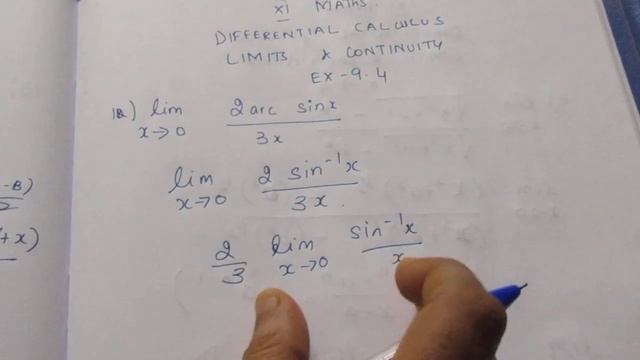 XI MATHS.
DIFFERENTIAL CALCULUS
LIMITS & CONTINUITY
EX-9.4
12) lim x→0 2 arc sin x / 3x
lim x→0 2 sin⁻¹x / 3x.
2/3 lim x→0 sin⁻¹x / x
-B)
2
+x)